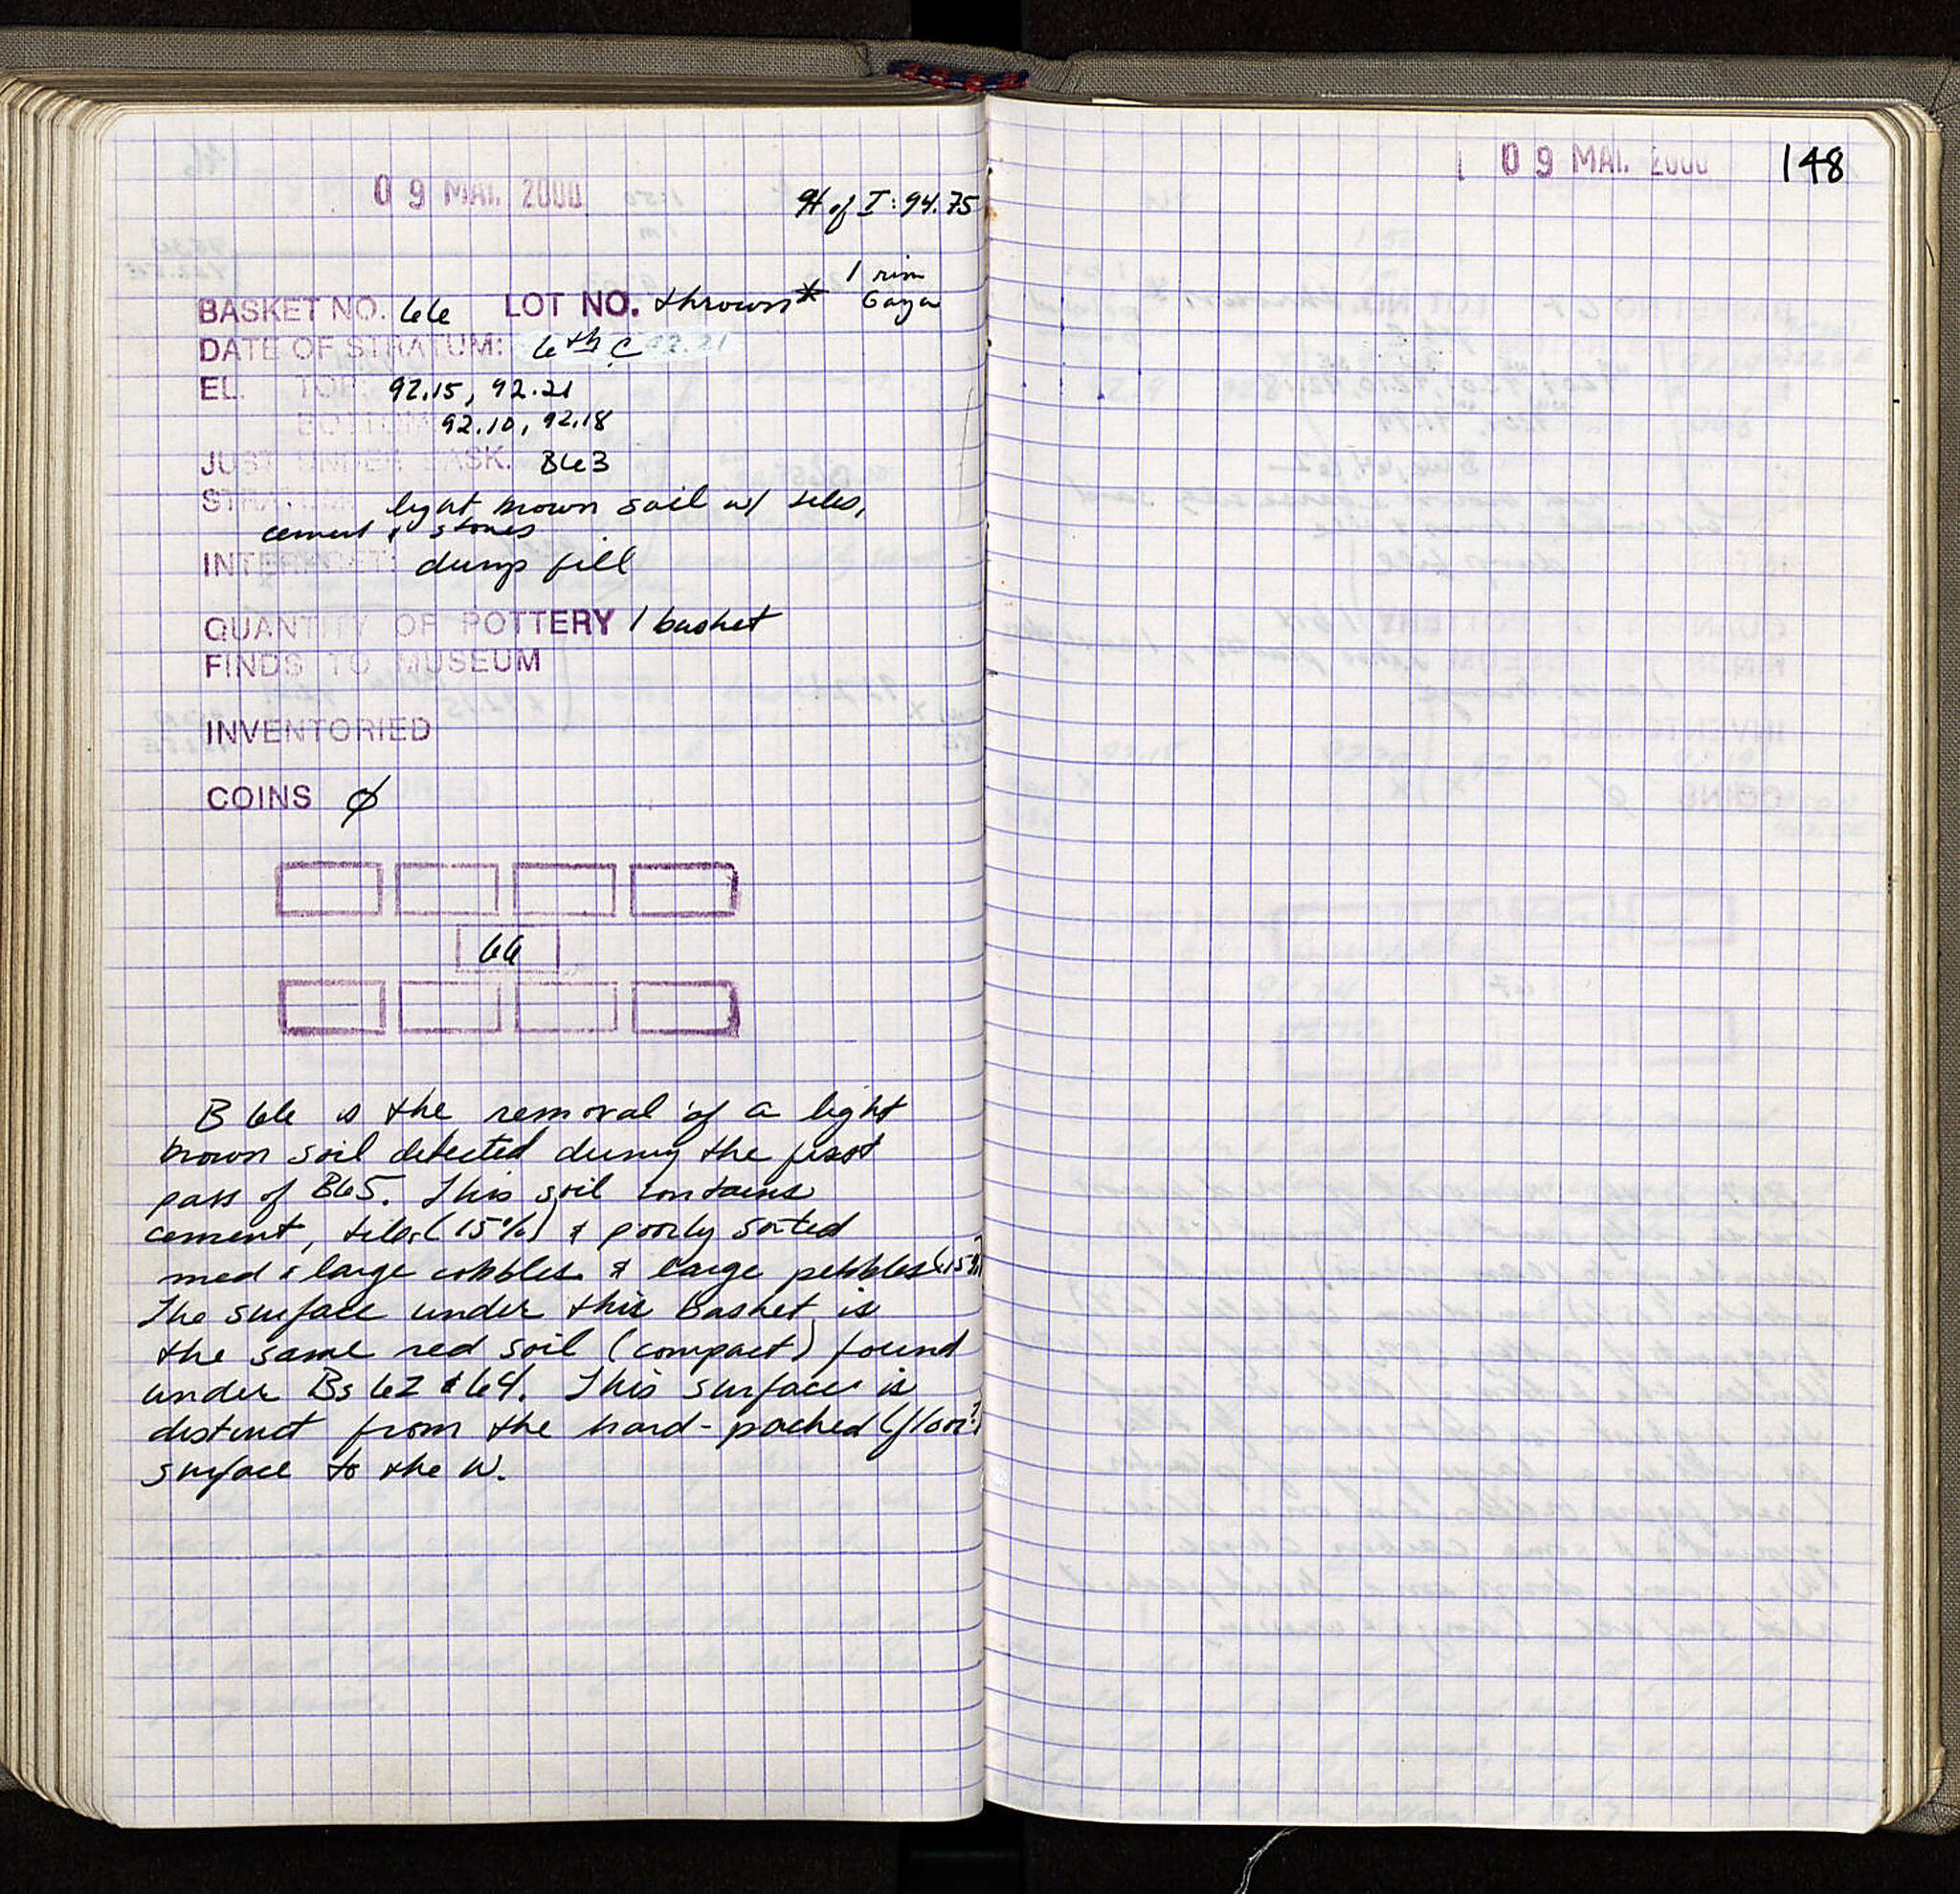 09 MAI. 2000
H of I: 94.75
1 rim
BASKET NO. 66 LOT NO. thrown* Gaza
DATE OF STRATUM: 6th C
EL. TOP: 92.15, 92.21
BOTTOM 92.10, 92.18
JUST UNDER BASK. B63
STRATUM light brown soil w/ tiles,
cement & stones
INTERPRET: dump fill
QUANTITY OF POTTERY 1 basket
FINDS TO MUSEUM
INVENTORIED
COINS Ø
66
B 66 is the removal of a light
brown soil detected during the first
pass of B65. This soil contains
cement, tiles (15%) & poorly sorted
med & large cobbles & large pebbles (15%)
The surface under this Basket is
the same red soil (compact) found
under Bs 62 & 64. This surface is
distinct from the hard-packed (floor?)
surface to the W.
09 MAI. 2000 148